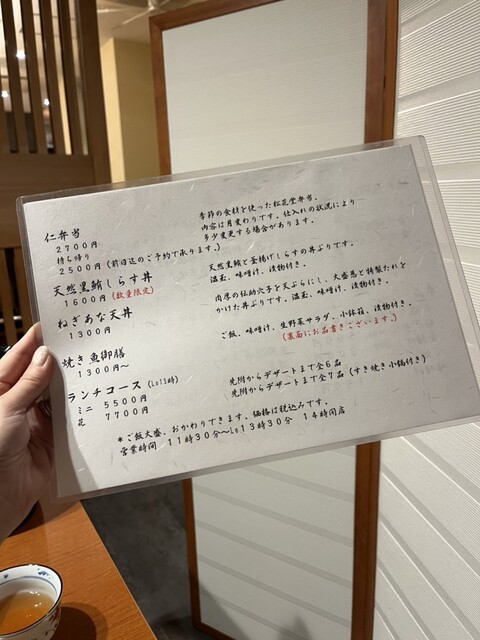 仁弁当
2700円
持ち帰り
2500円(前日迄のご予約で承ります。)
季節の食材を使った松花堂弁当。
内容は月変わりです。仕入れの状況により
多少変更する場合があります。
天然黒鮪しらす丼
1600円(数量限定)
天然黒鮪と釜揚げしらすの丼ぶりです。
温玉、味噌汁、漬物付き。
ねぎあな天丼
1300円
肉厚の伝助穴子を天ぷらにし、大盛葱と特製たれを
かけた丼ぶりです。温玉、味噌汁、漬物付き。
焼き魚御膳
1300円〜
ご飯、味噌汁、生野菜サラダ、小鉢箱、漬物付き。
(裏面にお品書きございます。)
ランチコース(Lo13時)
ミニ 5500円
花 7700円
先附からデザートまで全6品
先附からデザートまで全7品(すき焼き小鍋付き)
*ご飯大盛、おかわりできます。価格は税込みです。
営業時間 11時30分〜Lo13時30分 14時閉店